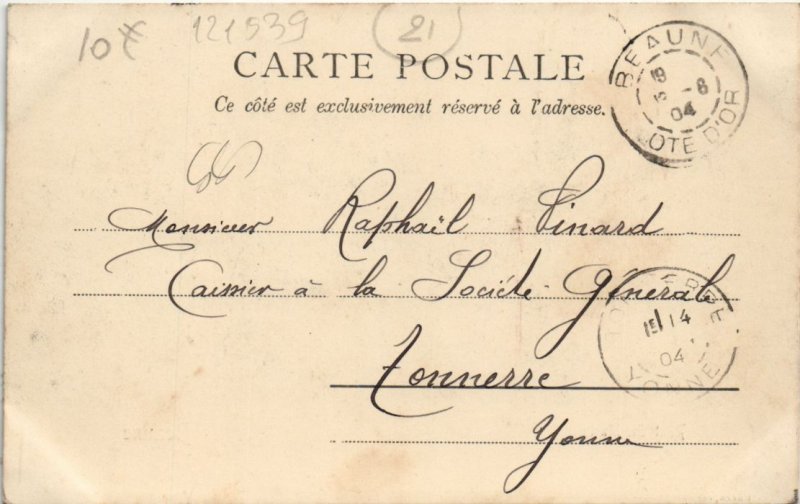 10€ 121539 21
CARTE POSTALE
Ce côté est exclusivement réservé à l'adresse.
BEAUNE
-8
04
COTE D'OR
Monsieur Raphaël Pinard
Caissier à la Société Générale
Tonnerre
Yonne
TONNERRE
14
04
YONNE